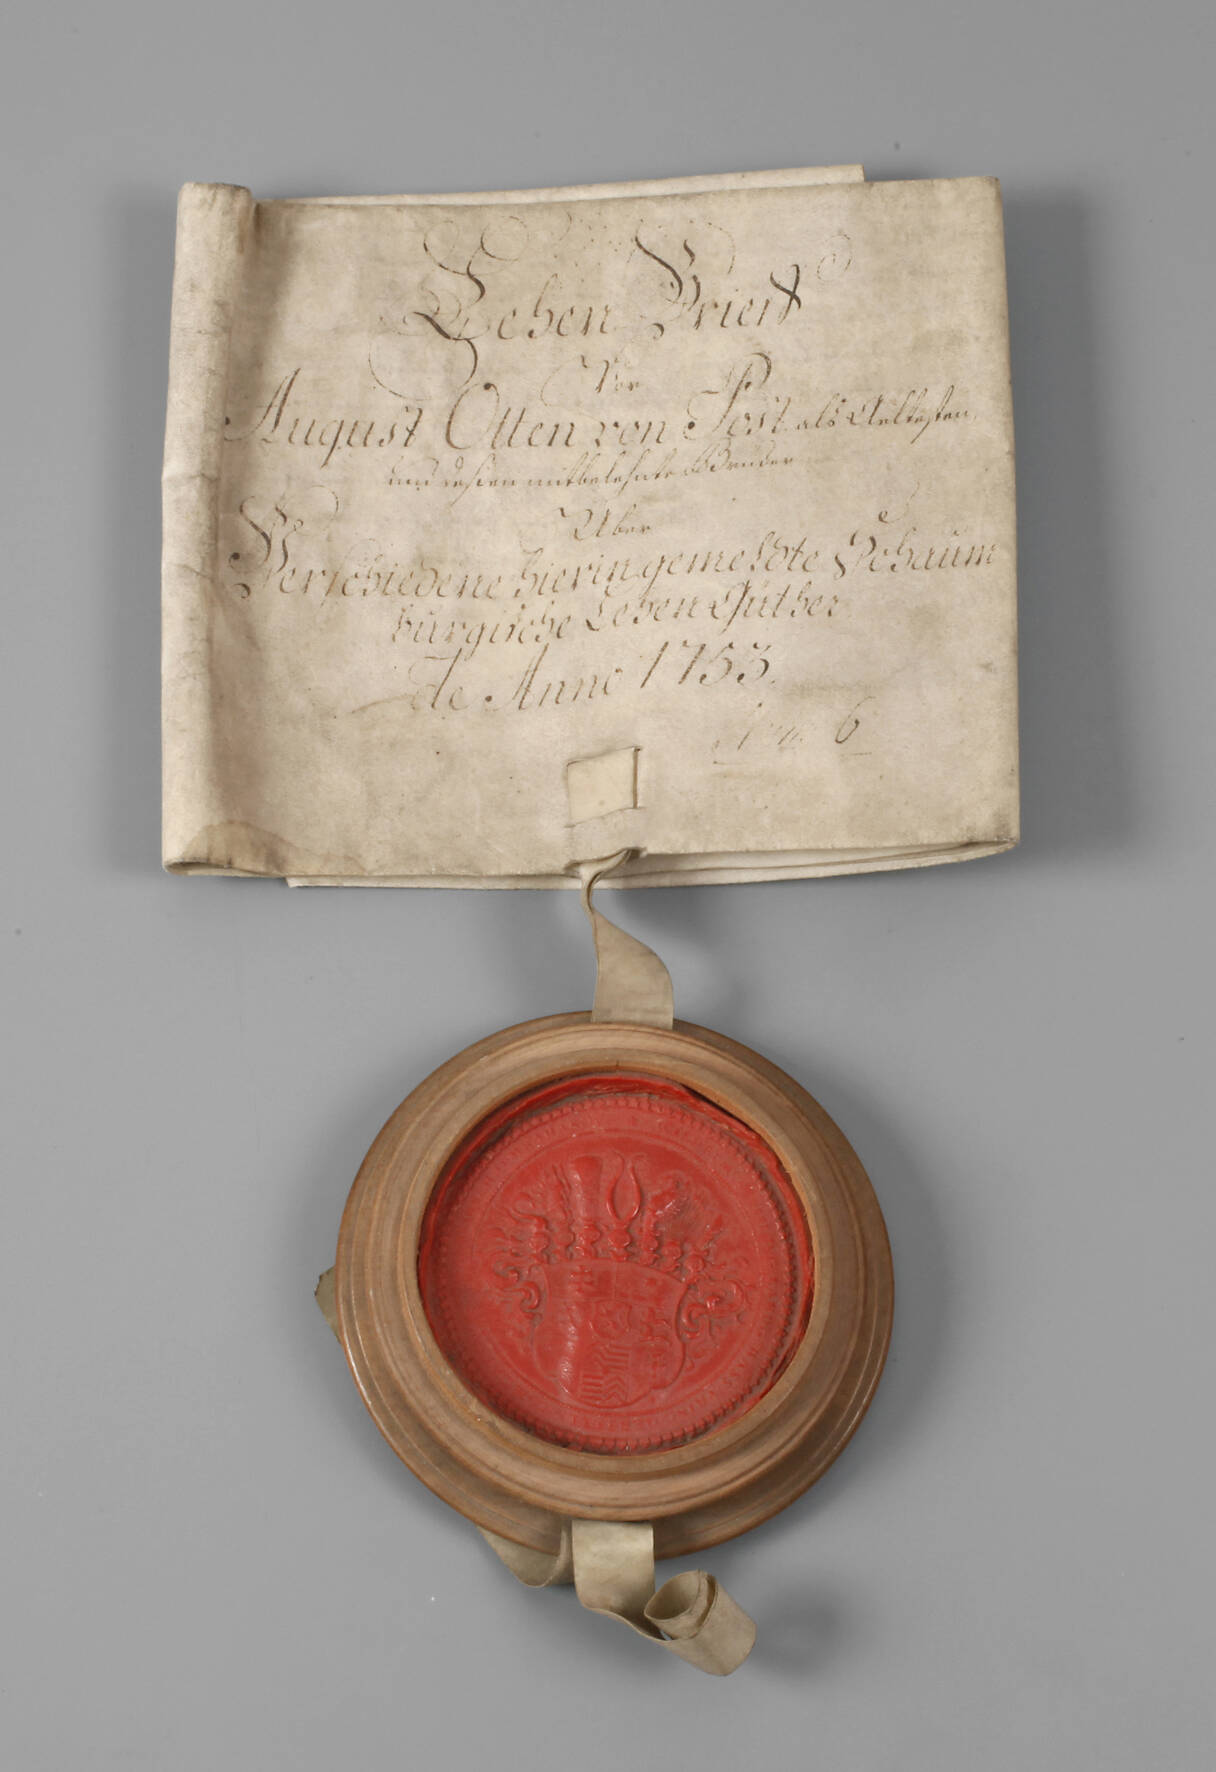 Lehen Brieff
Vor
August Otten von Post als Aeltesten,
und dessen mitbelehnte Brüder
Über
Verschiedene hierin gemeldte Schaum
burgische Lehen Güther
de Anno 1753.
6